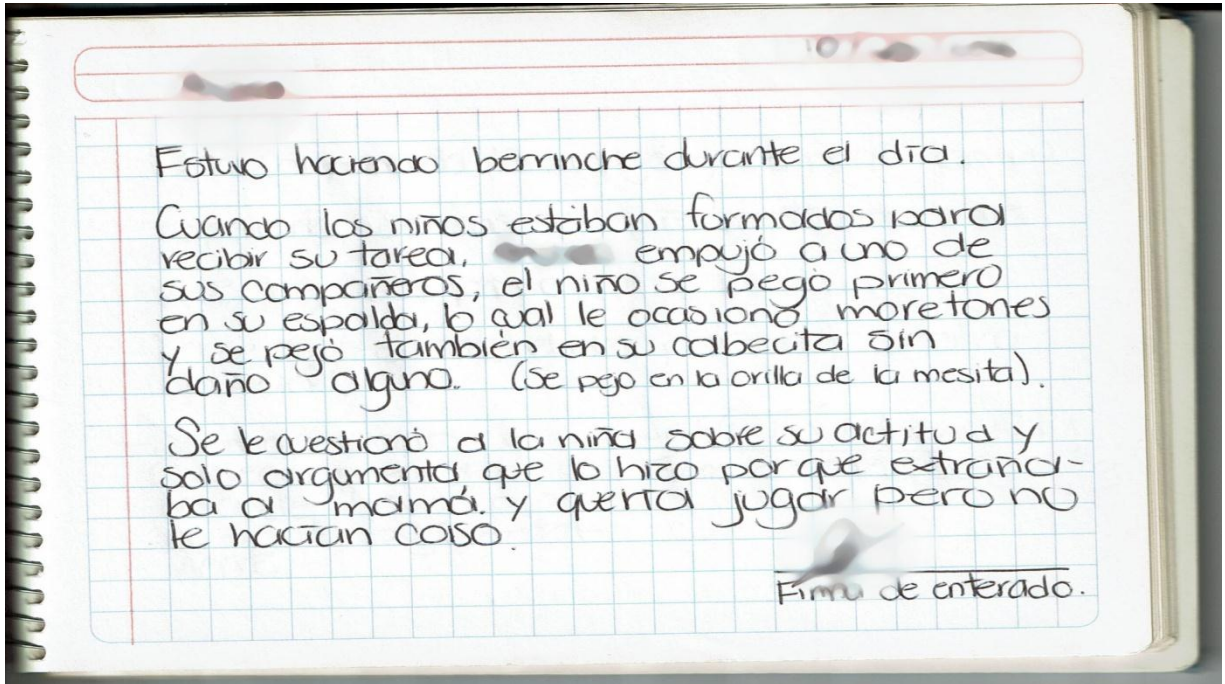 Estuvo haciendo berrinche durante el día.
Cuando los niños estaban formados para
recibir su tarea, empujó a uno de
sus compañeros, el niño se pegó primero
en su espalda, lo cual le ocasionó moretones
y se pegó también en su cabecita sin
daño alguno. (Se pego en la orilla de la mesita).
Se le cuestionó a la niña sobre su actitud y
solo argumenta que lo hizo porque extraña-
ba a mamá. y quería jugar pero no
le hacían caso.
Firma de enterado.